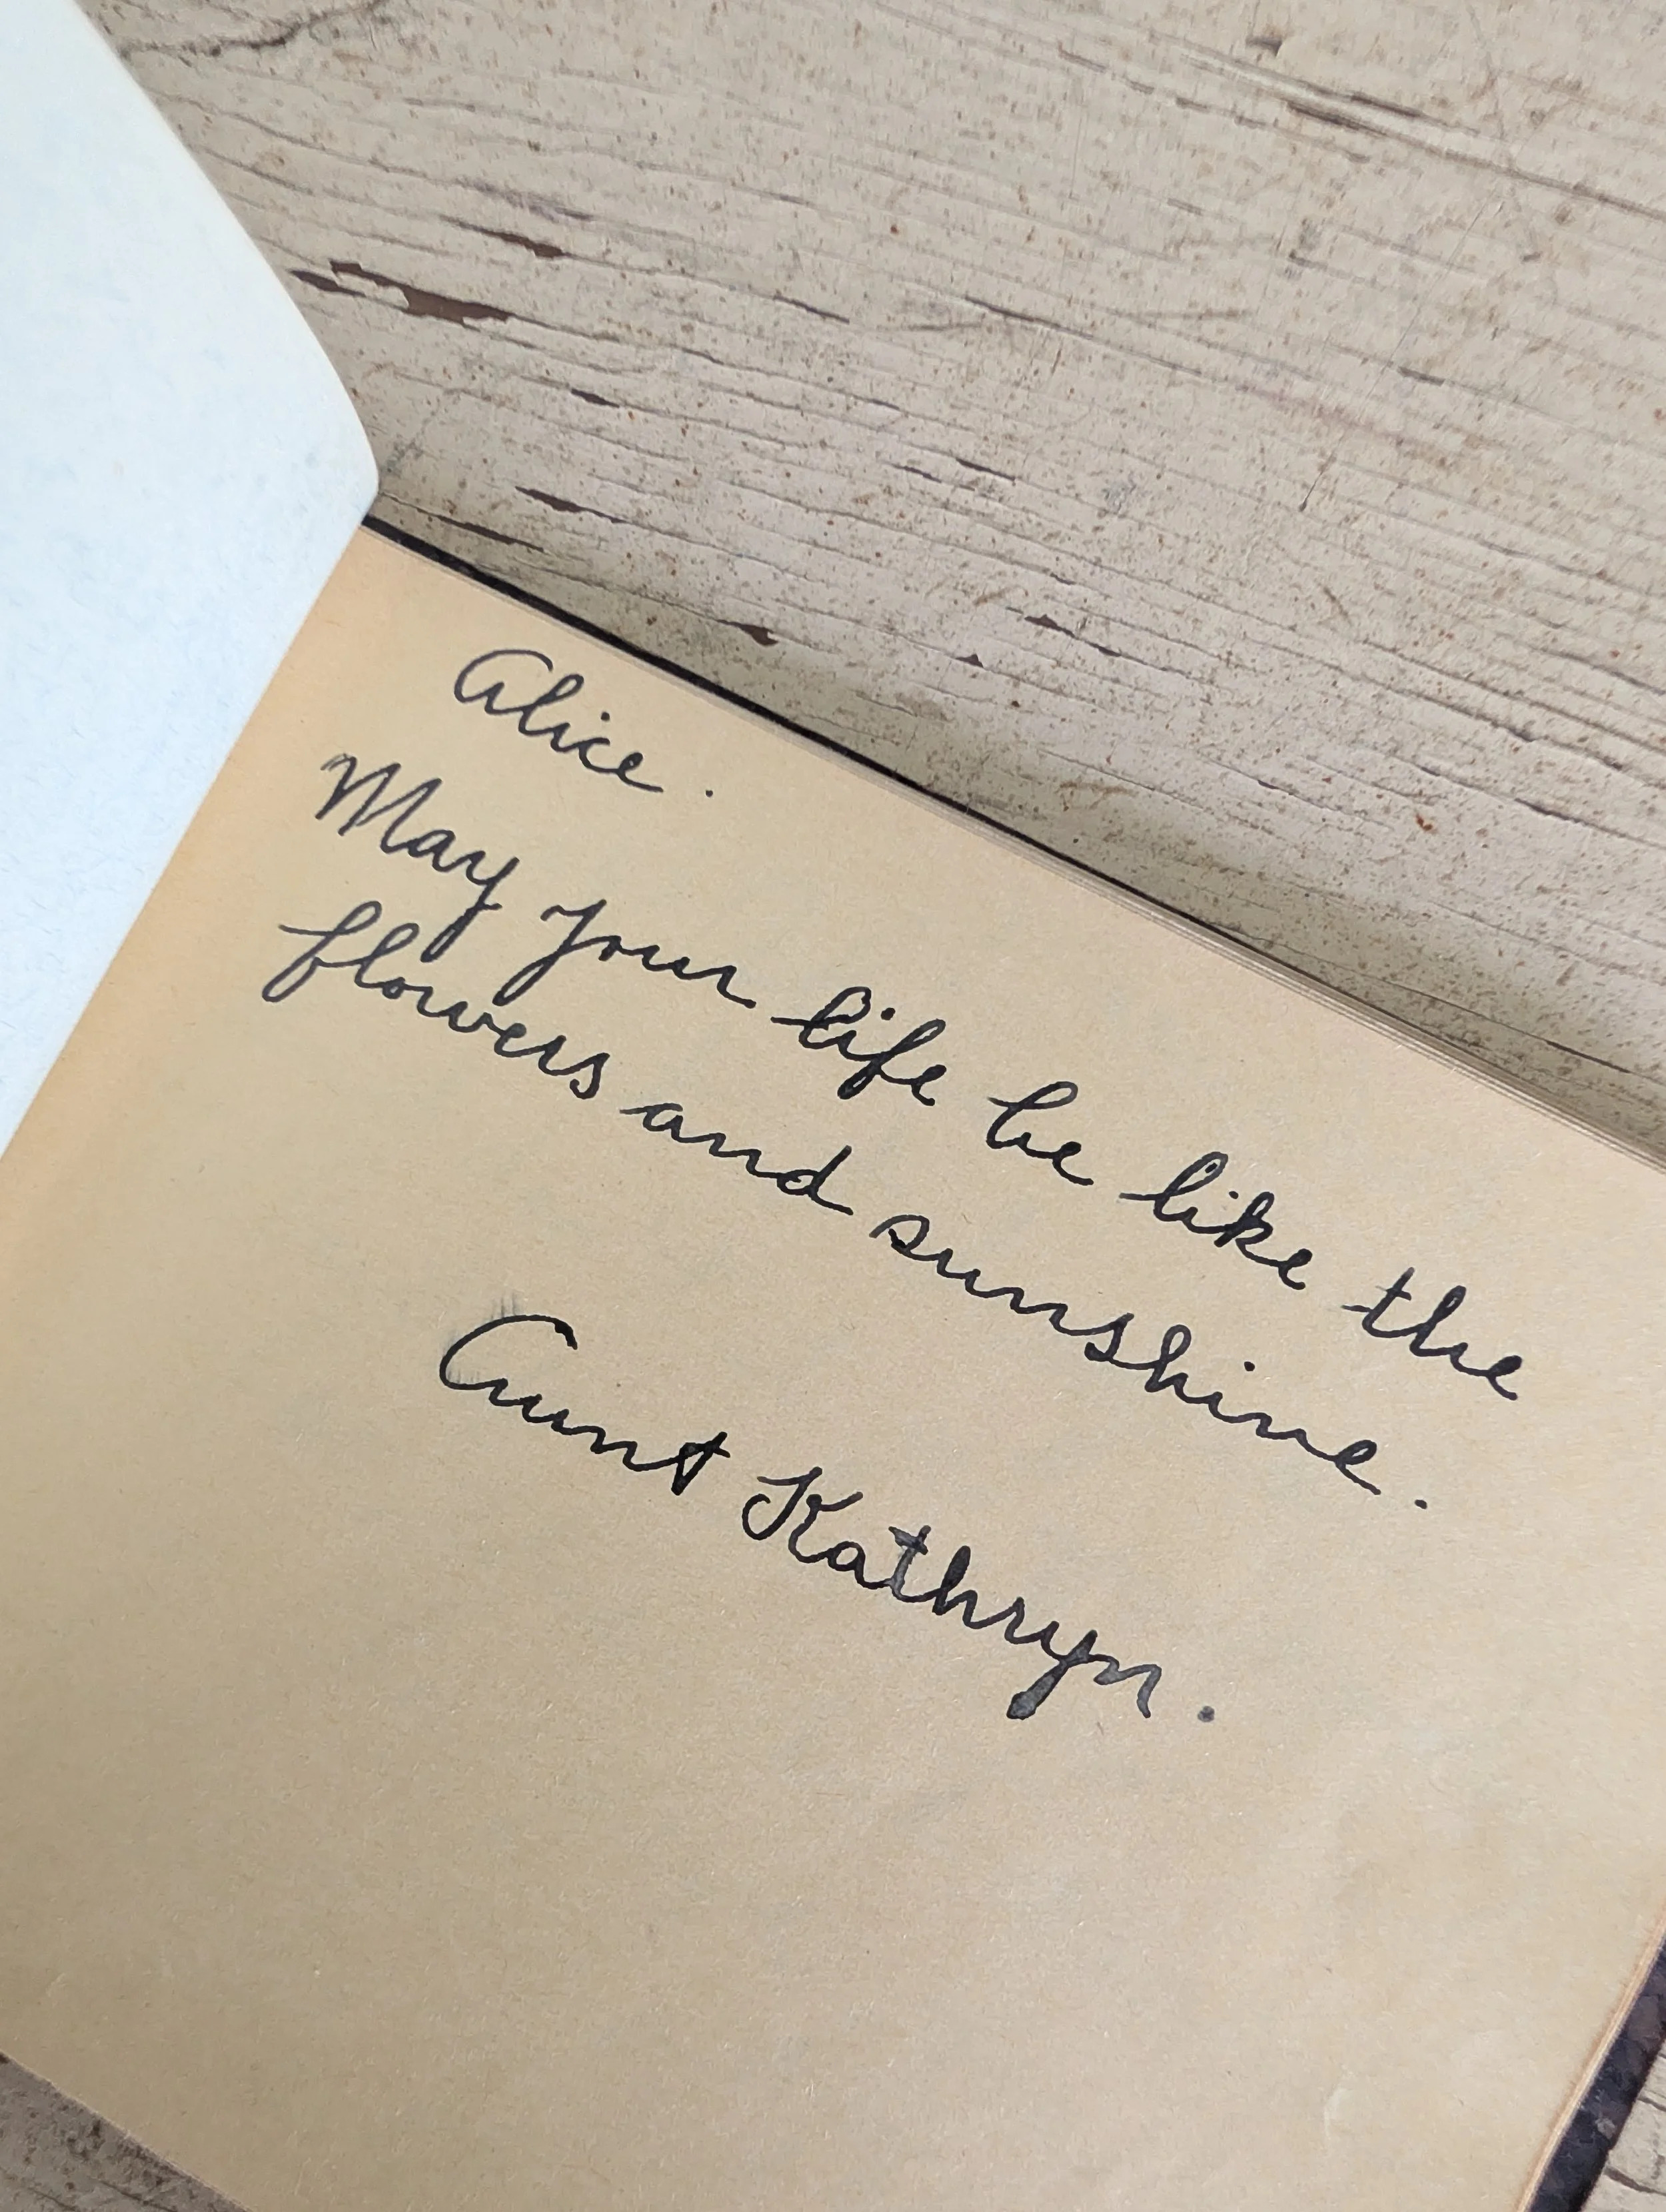 Alice.
May your life be like the
flowers and sunshine.
Aunt Kathryn.